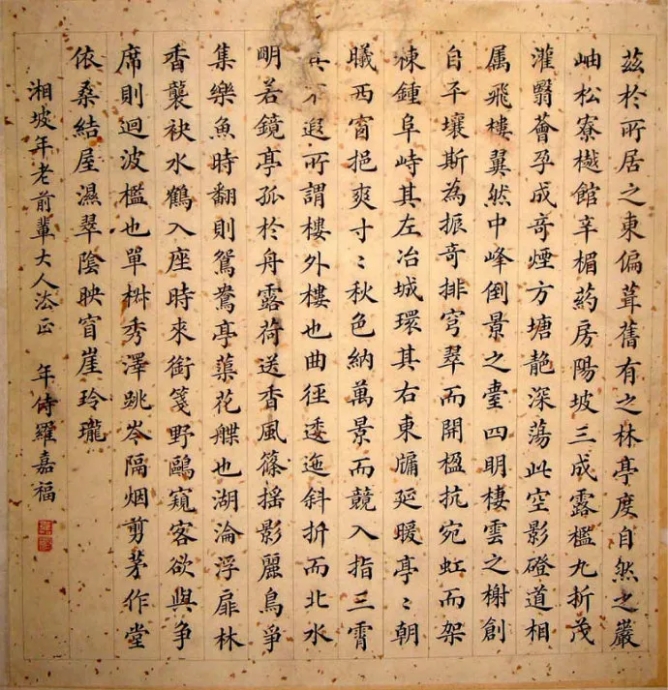 茲於所居之東偏葺舊有之林亭度自然之巖
岫松寮樾館辛楣葯房陽坡三成露檻九折茂
灌翳薈孕成奇煙方塘艶深蕩此空影磴道相
属飛樓翼然中峰倒景之臺四明棲雲之榭創
自平壤斯為振奇排穹翠而開楹抗宛虹而架
棟鍾阜峙其左冶城環其右東牖延暖亭〻朝
曦西窗挹爽寸〻秋色納萬景而競入指三霄
其不遐所謂樓外樓也曲徑逶迤斜折而北水
明若鏡亭孤於舟露荷送香風篠搖影麗鳥爭
集樂魚時翻則鴛鴦亭蕖花艓也湖淪浮扉林
香襲袂水鶴入座時來銜箋野鷗窺客欲與爭
席則迴波檻也單椒秀澤跳岑隔烟剪茅作堂
依桑結屋濕翠陰映窅崖玲瓏
湘坡年老前輩大人法正 年侍羅嘉福